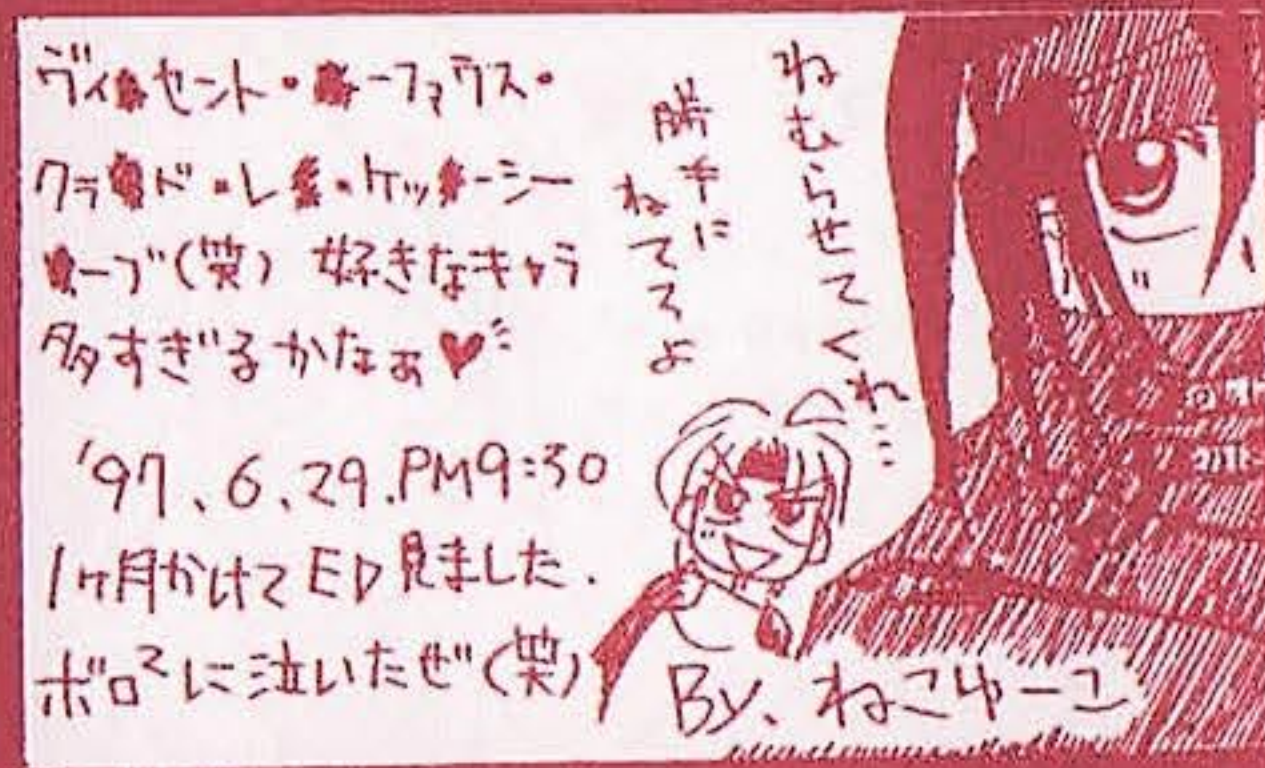 ヴィ●セント・●ーファヴス・
クラ●ド・レ●・ケッ●ーシー
●ーブ(笑) 好きなキャラ
多すぎるかなぁ♥
'97、6、29.PM9:30
1ヶ月かけてED見ました.
ボロ²に泣いたぜ(笑)
ねむらせてくれ…
勝手に
ねてろよ
By、ねこゆーこ